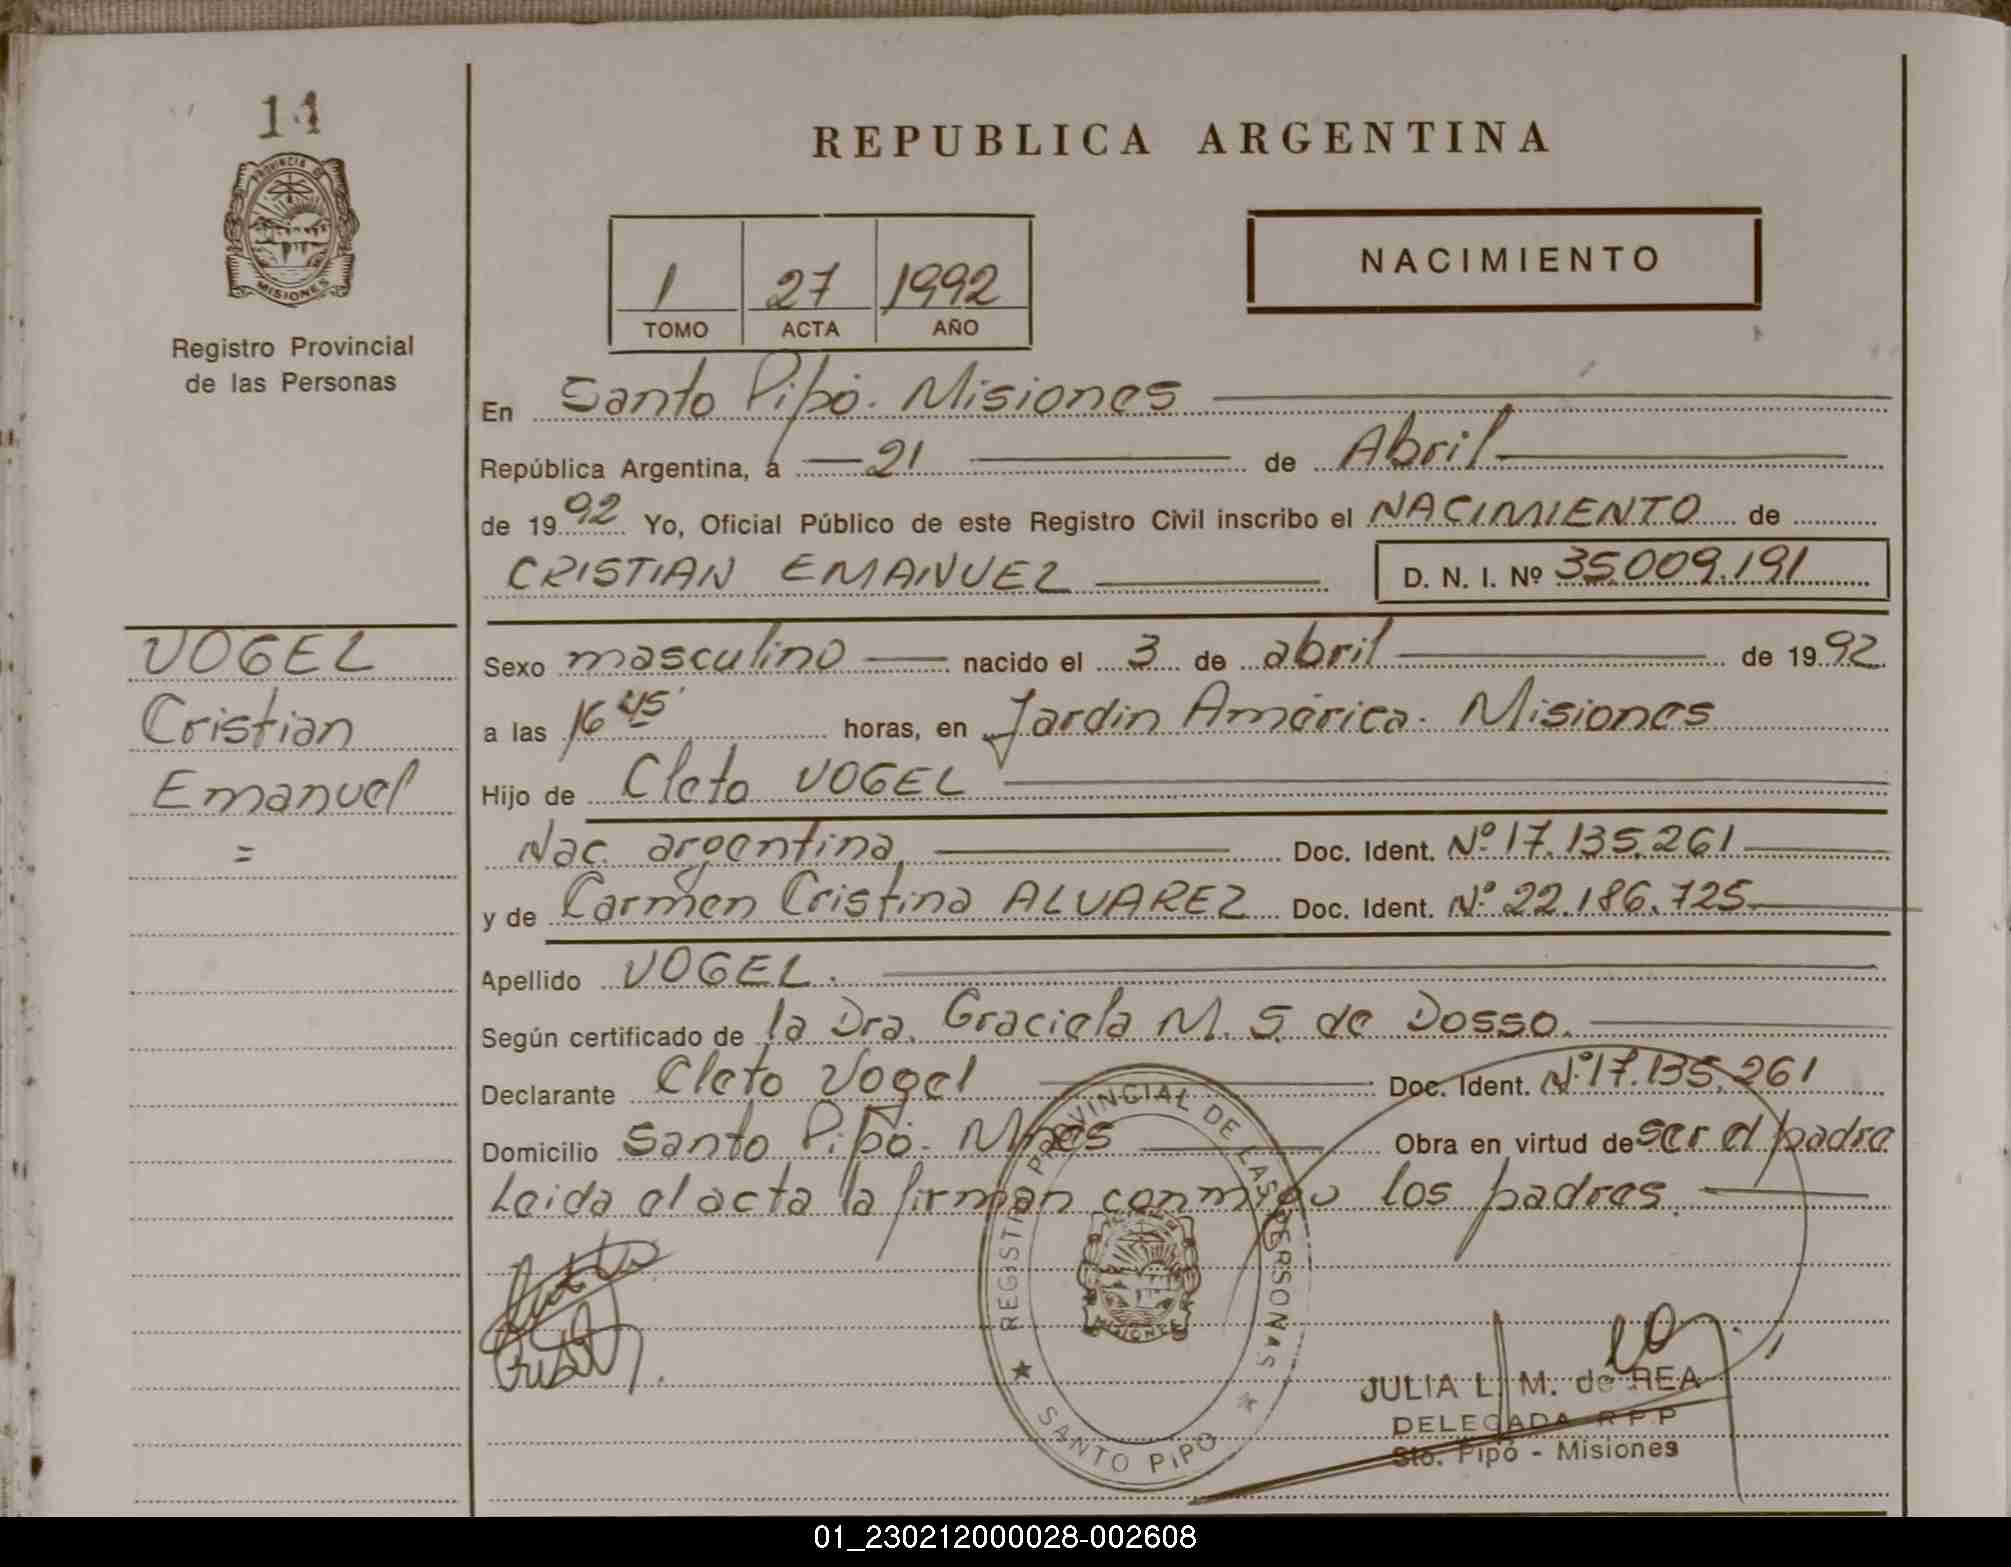 14
PROVINCIA DE
MISIONES
Registro Provincial
de las Personas
VOGEL
Cristian
Emanuel
=
REPUBLICA ARGENTINA
1 27 1992
TOMO ACTA AÑO
NACIMIENTO
En Santo Pipó. Misiones
República Argentina, a 21 de Abril
de 1992 Yo, Oficial Público de este Registro Civil inscribo el NACIMIENTO de
CRISTIAN EMANUEL D. N. I. Nº 35.009.191
Sexo masculino nacido el 3 de abril de 1992
a las 16 45' horas, en Jardin América. Misiones
Hijo de Cleto VOGEL
Nac. argentina, Doc. Ident. Nº 17.135.261
y de Carmen Cristina ALVAREZ Doc. Ident. Nº 22.186.725
Apellido VOGEL.
Según certificado de la Dra. Graciela M. S. de Dosso.
Declarante Cleto Vogel Doc. Ident. Nº 17.135.261
Domicilio Santo Pipó. Mnes Obra en virtud de ser el padre
Leida el acta la firman conmigo los padres.
REGISTRO PROVINCIAL DE LAS PERSONAS
MISIONES
SANTO PIPO
JULIA L. M. de REA
DELEGADA R.P.P
Sto. Pipó - Misiones
01_230212000028-002608